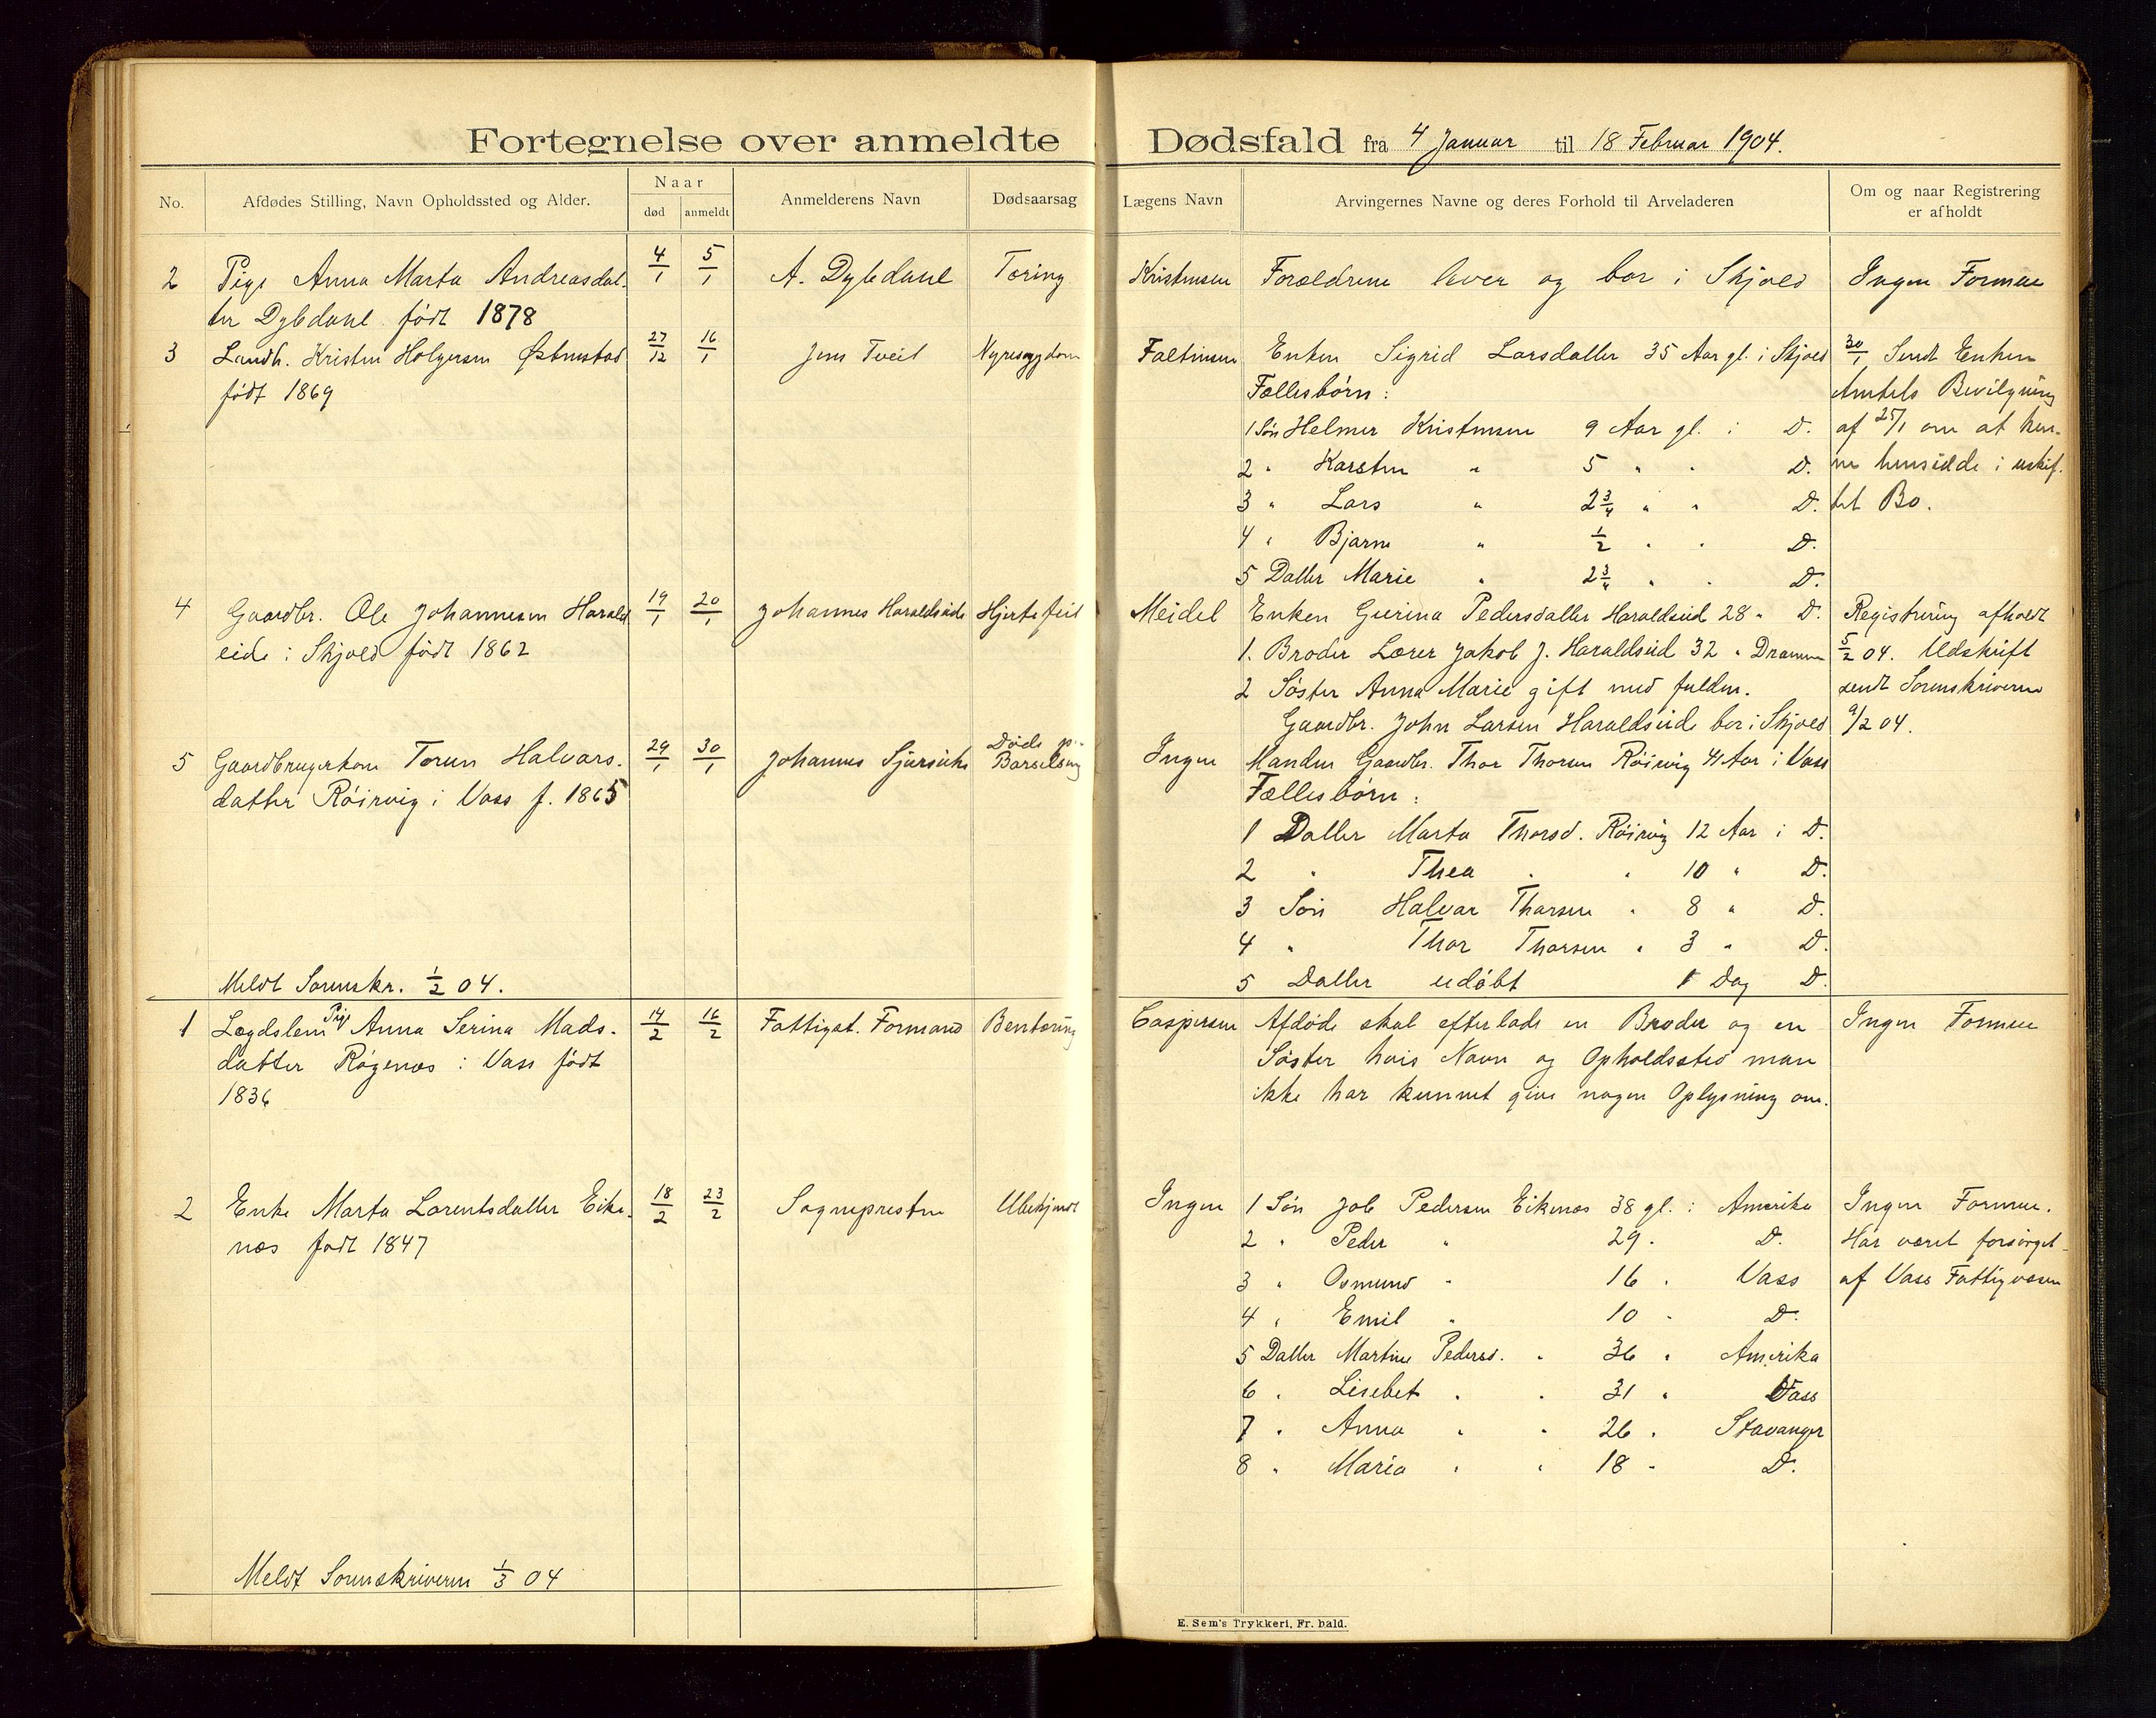 Fortegnelse over anmeldte Dødsfald fra 4 Januar til 18 Februar 1904.
No. Afdødes Stilling, Navn Opholdssted og Alder. Naar død anmeldt Anmelderens Navn Dødsaarsag Lægens Navn Arvingernes Navne og deres Forhold til Arveladeren Om og naar Registrering er afholdt
2 Pige Anna Marta Andreasdat- 4/1 5/1 A. Dybdahl Tæring Kristensen Forældrene lever og bor i Skjold Ingen Formue
ter Dybdahl født 1878
3 Landh. Kristen Holgersen Østenstad 27/12 16/1 Jens Tveit Nyresygdom Faltinsen Enken Sigrid Larsdatter 35 Aar gl. i Skjold 30/1 Sendt Enken
født 1869 Fællesbørn: Amtets Bevilgning
1 Søn Helmer Kristensen 9 Aar gl. i D. af 25/1 om at kun-
2 " Karsten " 5 " " D. ne hensidde i uskif-
3 " Lars " 2 3/4 " " D. tet Bo.
4 " Bjarne " 1/2 " " D.
5 Datter Marie " 2 3/4 " " D.
4 Gaardbr. Ole Johannesen Harald 19/1 20/1 Johannes Haraldseide Hjertefeil Meidel Enken Gurina Pedersdatter Haraldseid 28 " D. Registrering afholdt
eide i Skjold født 1862 1. Broder Lærer Jakob J. Haraldseid 32 " Drammen 5/2 04. Udskrift
2 Søster Anna Marie gift med fuldm. sendt Sorenskriveren
Gaardbr. John Larsen Haraldseide bor i Skjold 9/2 04.
5 Gaardbrugerkone Torun Halvars- 29/1 30/1 Johannes Sjurseike Døde p. Barselseng Ingen Manden Gaardbr. Thor Thorsen Röirvig 41 Aar i Vass
datter Röirvig i Vass f. 1865 Fællesbørn:
1 Datter Marta Thorsd. Röirvig 12 Aar i D.
2 " Thea " " 10 " D.
3 Søn Halvar Thorsen " 8 " D.
4 " Thor Thorsen " 3 " D.
Meldt Sorenskr. 1/2 04. 5 Datter udöbt 1 Dag D.
1 Lægdslem Pige Anna Serina Mads- 14/2 16/2 Fattigst. Formand Bentæring Caspersen Afdøde skal efterlade en Broder og en Ingen Formue
datter Røgenæs i Vass født Søster hvis Navn og Opholdssted man
1836 ikke har kunnet give nogen Oplysning om.
2 Enke Marta Lorentsdatter Eike- 18/2 23/2 Sognepresten Ubekjendt Ingen 1 Søn Job Pedersen Eikenæs 38 gl. i Amerika Ingen Formue.
næs født 1847 2 " Peder " 29 " D. Har været forsörget
3 " Osmund " 16 " Vass af Vass Fattigvæsen
4 " Emil " 10 " D.
5 Datter Martine Pedersd. " 36 " Amerika
6 " Lisebet " " 31 " Vass
7 " Anna " " 26 " Stavanger
8 " Maria " " 18 " D.
Meldt Sorenskriveren 1/3 04
E. Sem's Trykkeri, Fr. hald.